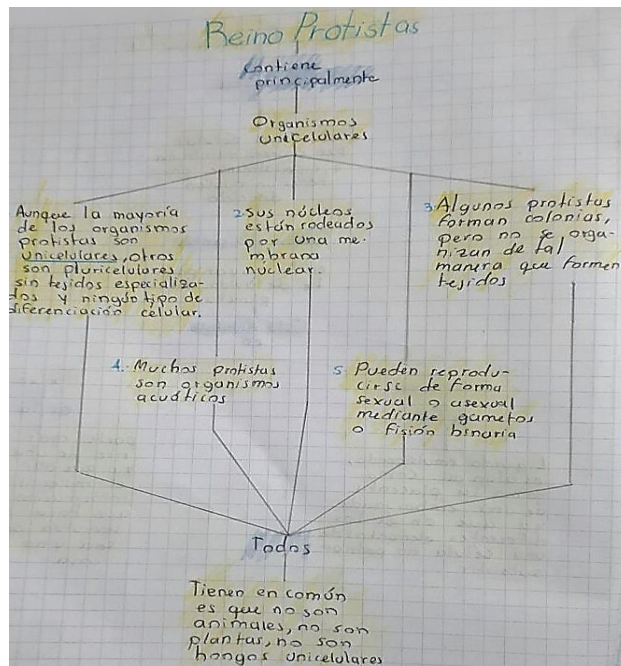 Reino Protistas
Contiene
principalmente
Organismos
unicelulares
Aunque la mayoría
de los organismos
protistas son
unicelulares, otros
son pluricelulares
sin tejidos especializa-
dos y ningún tipo de
diferenciación celular.
2. Sus núcleos
están rodeados
por una me-
mbrana
nuclear.
3. Algunos protistas
forman colonias,
pero no se orga-
nizan de tal
manera que formen
tejidos
4. Muchos protistas
son organismos
acuáticos
5. Pueden reprodu-
cirse de forma
sexual o asexual
mediante gametos
o fisión binaria
Todos
Tienen en común
es que no son
animales, no son
plantas, no son
hongos unicelulares